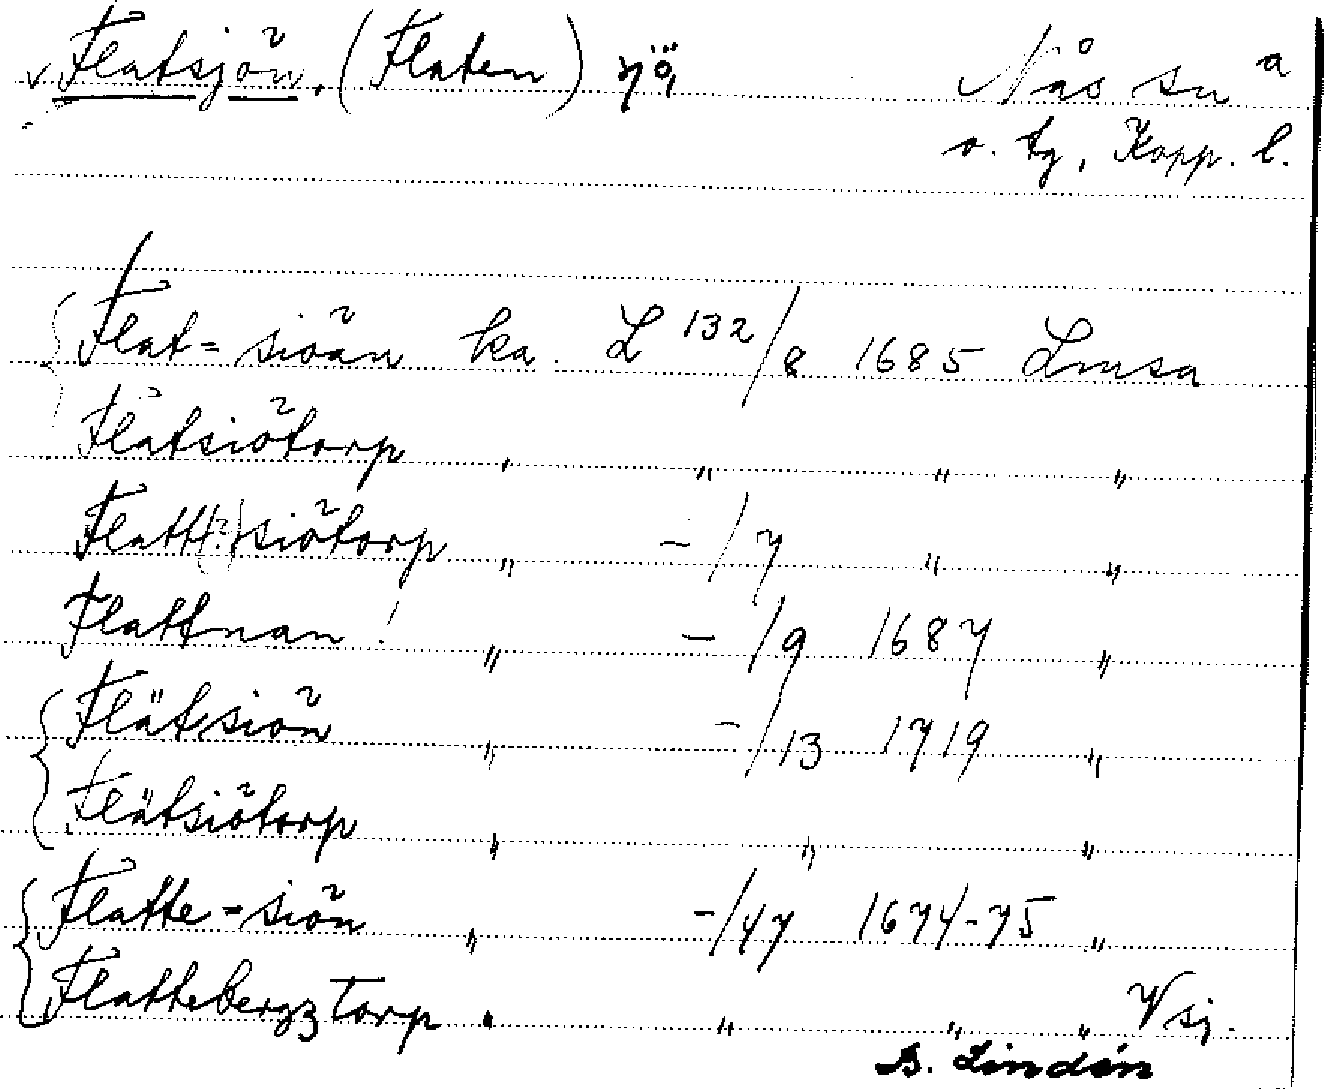 v Flatsjön, (Flaten) sjö, Nås sn a
o. tg, Kopp. l.
Flat=siöän ka. L 132/8 1685 Lmsa
Flätsiötorp " " " "
Flatt(?)siötorp " -/7 " "
Flattnan! " -/9 1687 "
Flätsiön " -/13 1719 "
Flätsiötorp " " "
Flatte-siön " -/47 1674-75 "
Flattebergz Torp " " " " Vsj.
B. Lindén